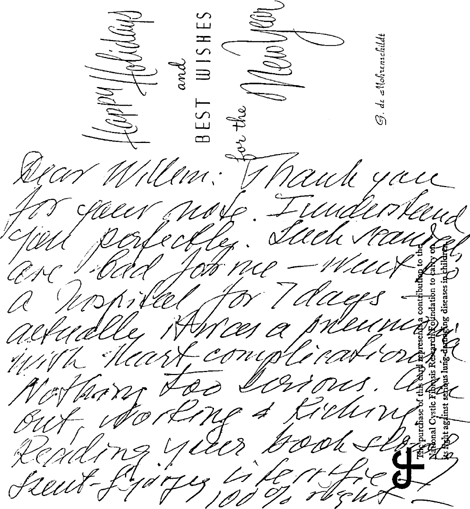 Happy Holidays
and
BEST WISHES
for the
New Year
G. de Mohrenschildt
Dear Willem: Thank you
for your note. I understand
you perfectly. Such
are bad for me – went
a hospital for 7 days –
actually it was a
with heart complication
Nothing too serious.
out, working & kicking
Reading your book
Szent-Györgyi
100% right –
The purchase of this card represents a contribution to the
National Cystic Fibrosis Research Foundation to carry on
its fight against serious lung-damaging diseases in children.
cf